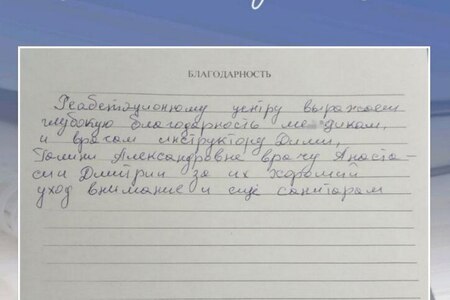 БЛАГОДАРНОСТЬ
Реабетационному центру выражаем
глубокую благодарность медикам,
и врачам инструктору Дими,
Галини Александровне врачу Анаста-
сии Дмитрии за их хороший
уход внимание и еще санитарам